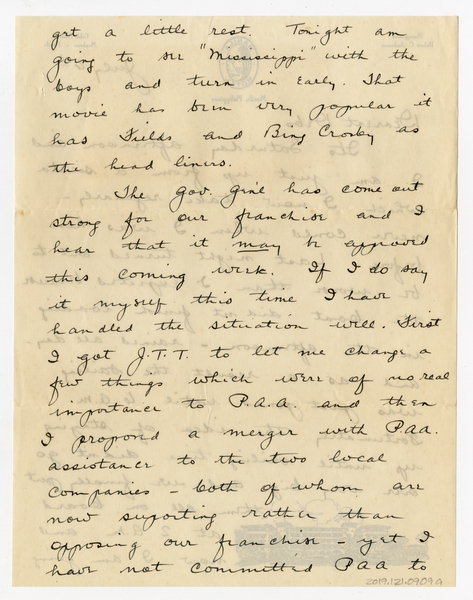 get a little rest. Tonight am
going to see "Mississippi" with the
boys and turn in early. That
movie has been very popular it
has Fields and Bing Crosby as
the head liners.
The Gov. Gen'l has come out
strong for our franchise and I
hear that it may be approved
this coming week. If I do say
it myself this time I have
handled the situation well. First
I got J.T.T. to let me change a
few things which were of no real
importance to P.A.A. and then
I proposed a merger with P.A.A.
assistance to the two local
companies – both of whom are
now suporting rather than
opposing our franchise – yet I
have not committed PAA to
2019.121.0909a